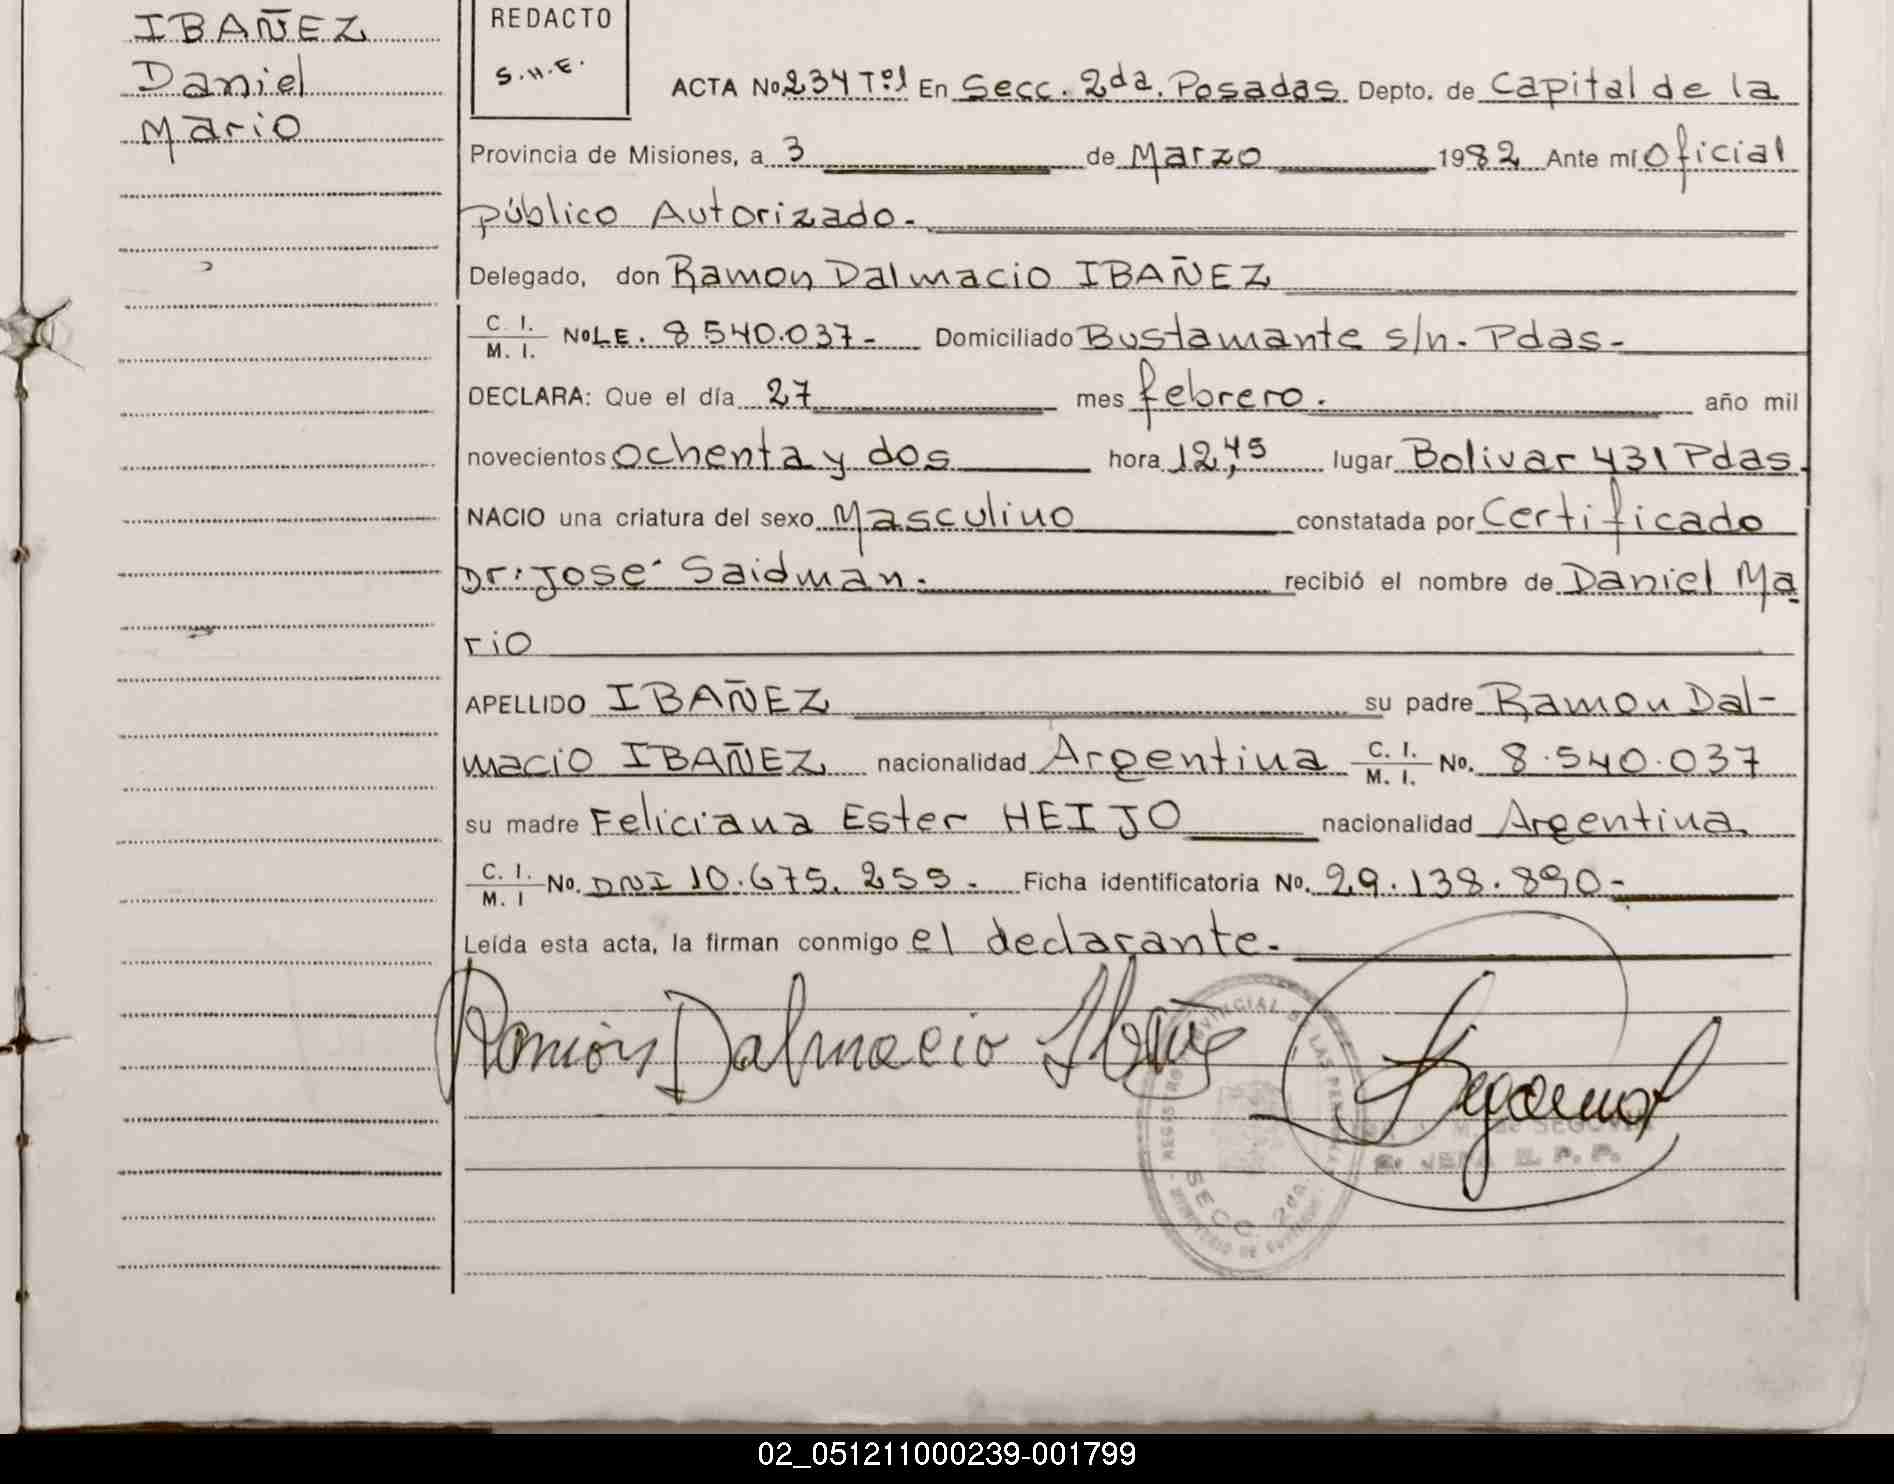 IBAÑEZ
Daniel
Mario
REDACTO
S.H.E.
ACTA No 234 Tº1 En Secc. 2da. Posadas Depto. de Capital de la
Provincia de Misiones, a 3 de Marzo 1982 Ante mí Oficial
público Autorizado.
Delegado, don Ramon Dalmacio IBAÑEZ
C. I. / M. I. No LE. 8.540.037- Domiciliado Bustamante s/n. Pdas-
DECLARA: Que el día 27 mes febrero. año mil
novecientos ochenta y dos hora 12,45 lugar Bolivar 431 Pdas.
NACIO una criatura del sexo Masculino constatada por Certificado
Dr: José Saidman. recibió el nombre de Daniel Ma
rio
APELLIDO IBAÑEZ su padre Ramon Dal-
macio IBAÑEZ nacionalidad Argentina C. I. / M. I. No. 8.540.037
su madre Feliciana Ester HEIJO nacionalidad Argentina
C. I. / M. I No. DNI 10.675.255- Ficha identificatoria No. 29.138.890-
Leída esta acta, la firman conmigo el declarante.
Ramón Dalmacio
SECC. 2da.
02_051211000239-001799